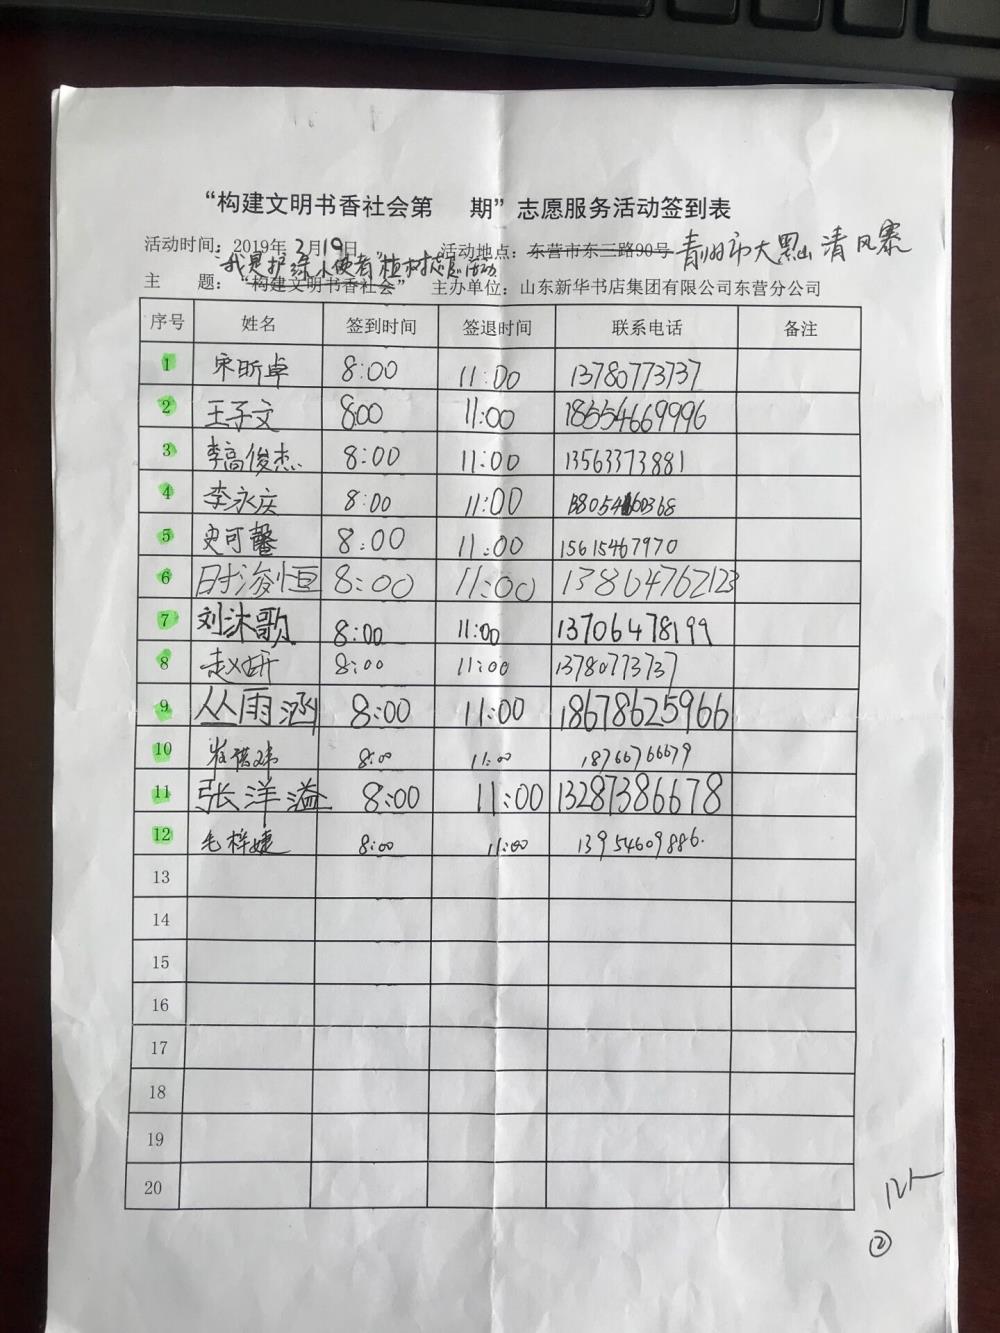 “构建文明书香社会第 期”志愿服务活动签到表
活动时间：2019年2月19日 活动地点：东营市东三路90号 青州市大黑山清风寨
我是护绿小使者 植树志愿活动
主 题：“构建文明书香社会” 主办单位：山东新华书店集团有限公司东营分公司
序号 姓名 签到时间 签退时间 联系电话 备注
1 宋昕卓 8:00 11:00 13780773737
2 王子文 8:00 11:00 18554669996
3 李高俊杰 8:00 11:00 13563373881
4 李永庆 8:00 11:00
5 史可馨 8:00 11:00 15615467970
6 时浚恒 8:00 11:00 13864762123
7 刘沐歌 8:00 11:00 13706478199
8 赵妍 8:00 11:00 13780773737
9 丛雨涵 8:00 11:00 18678625966
10 8:00 11:00 18766766679
11 张洋溢 8:00 11:00 13287386678
12 毛梓婕 8:00 11:00 13954609886.
13
14
15
16
17
18
19
20
12人
②